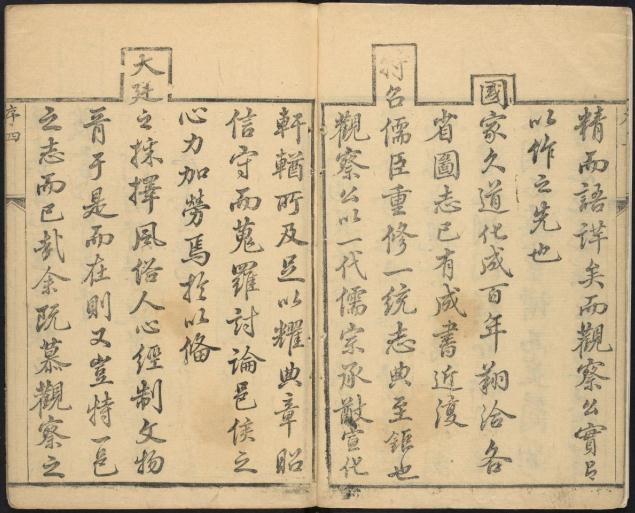 精而語詳矣而觀察公實有
以作之先也
國家久道化成百年翔洽各
省圖志已有成書近復
特召儒臣重修一統志典至鉅也
觀察公以一代儒宗承敷宣化
軒輶所及足以耀典章昭
信守而蒐羅討論邑侯之
心力加勞焉於以備
大廷之採擇風俗人心經制文物
胥于是而在則又豈特一邑
之志而已哉余既慕觀察之
序四